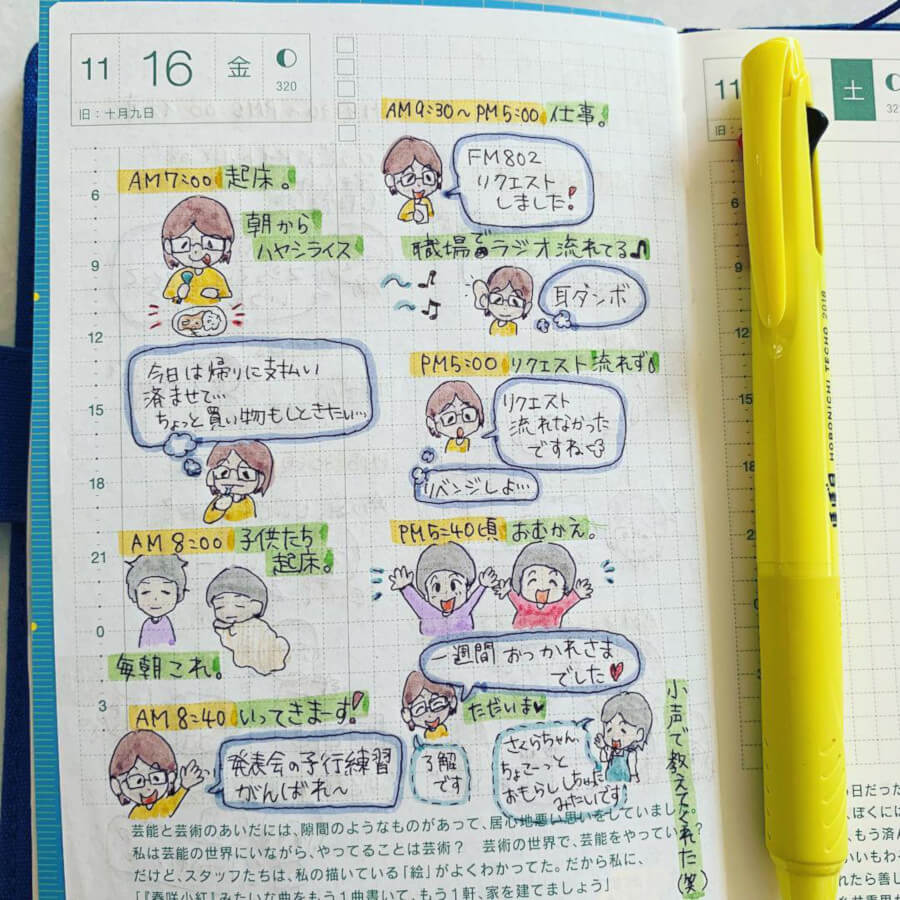 11 16 金
320
旧:十月九日
6
9
12
15
18
21
0
3
AM7:00 起床。
朝から
ハヤシライス
今日は帰りに支払い
済ませて…
ちょっと買い物もしときたい…
AM 8:00 子供たち
起床。
毎朝これ。
AM 8:40 いってきまーす!
発表会の予行練習
がんばれ〜
AM9:30〜PM5:00 仕事。
FM802
リクエスト
しました!
職場でラジオ流れてる♪
耳ダンボ
PM5:00 リクエスト流れず。
リクエスト
流れなかった
ですね
リベンジしよ…
PM5:40頃 おむかえ。
一週間 おつかれさま
でした♥
ただいま♥
了解
です
さくらちゃん、
ちょこーっと
おもらししちゃった
みたいです
小声で教えてくれた(笑)
芸能と芸術のあいだには、隙間のようなものがあって、居心地悪い思いをしていました。
私は芸能の世界にいながら、やってることは芸術? 芸術の世界で、芸能をやっている?
だけど、スタッフたちは、私の描いている「絵」がよくわかってた。だから私に、
「『春咲小紅』みたいな曲をもう1曲書いて、もう1軒、家を建てましょう」
11
土
旧:
9
12
15
18
21
0
3
HOBONICHI TECHO 2018
ほぼ日